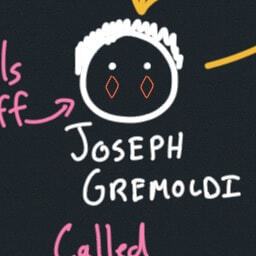 ls
ff
JOSEPH
GREMOLDI
Called